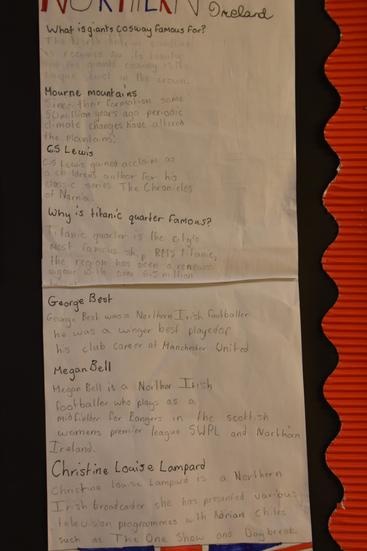 NORTHERN Ireland
What is giants cosway famous for?
The North
as
giants cosway
in the crown.
Mourne mountains
Since their formation some
50 million years ago periodic
climate changes have altered
the mountains.
CS Lewis
CS Lewis gained acclaim as
a childrens author for his
classic series The Chronicles
of Narnia.
Why is titanic quarter famous?
Titanic quarter is the city's
most famous ship RMS Titanic,
the region has been a
with over 6.5 million
George Best
George Best was a Northern Irish footballer
he was a winger best played of
his club career at Manchester United
Megan Bell
Megan Bell is a Northern Irish
footballer who plays as a
midfielder for Rangers in the scottish
womens premier league SWPL and Northarn
Ireland.
Christine Louise Lampard
Christine Louise Lampard is a Northern
Irish broadcader she has presented various
television programmes with Adrian Chiles
such as The One Show and Daybreak.